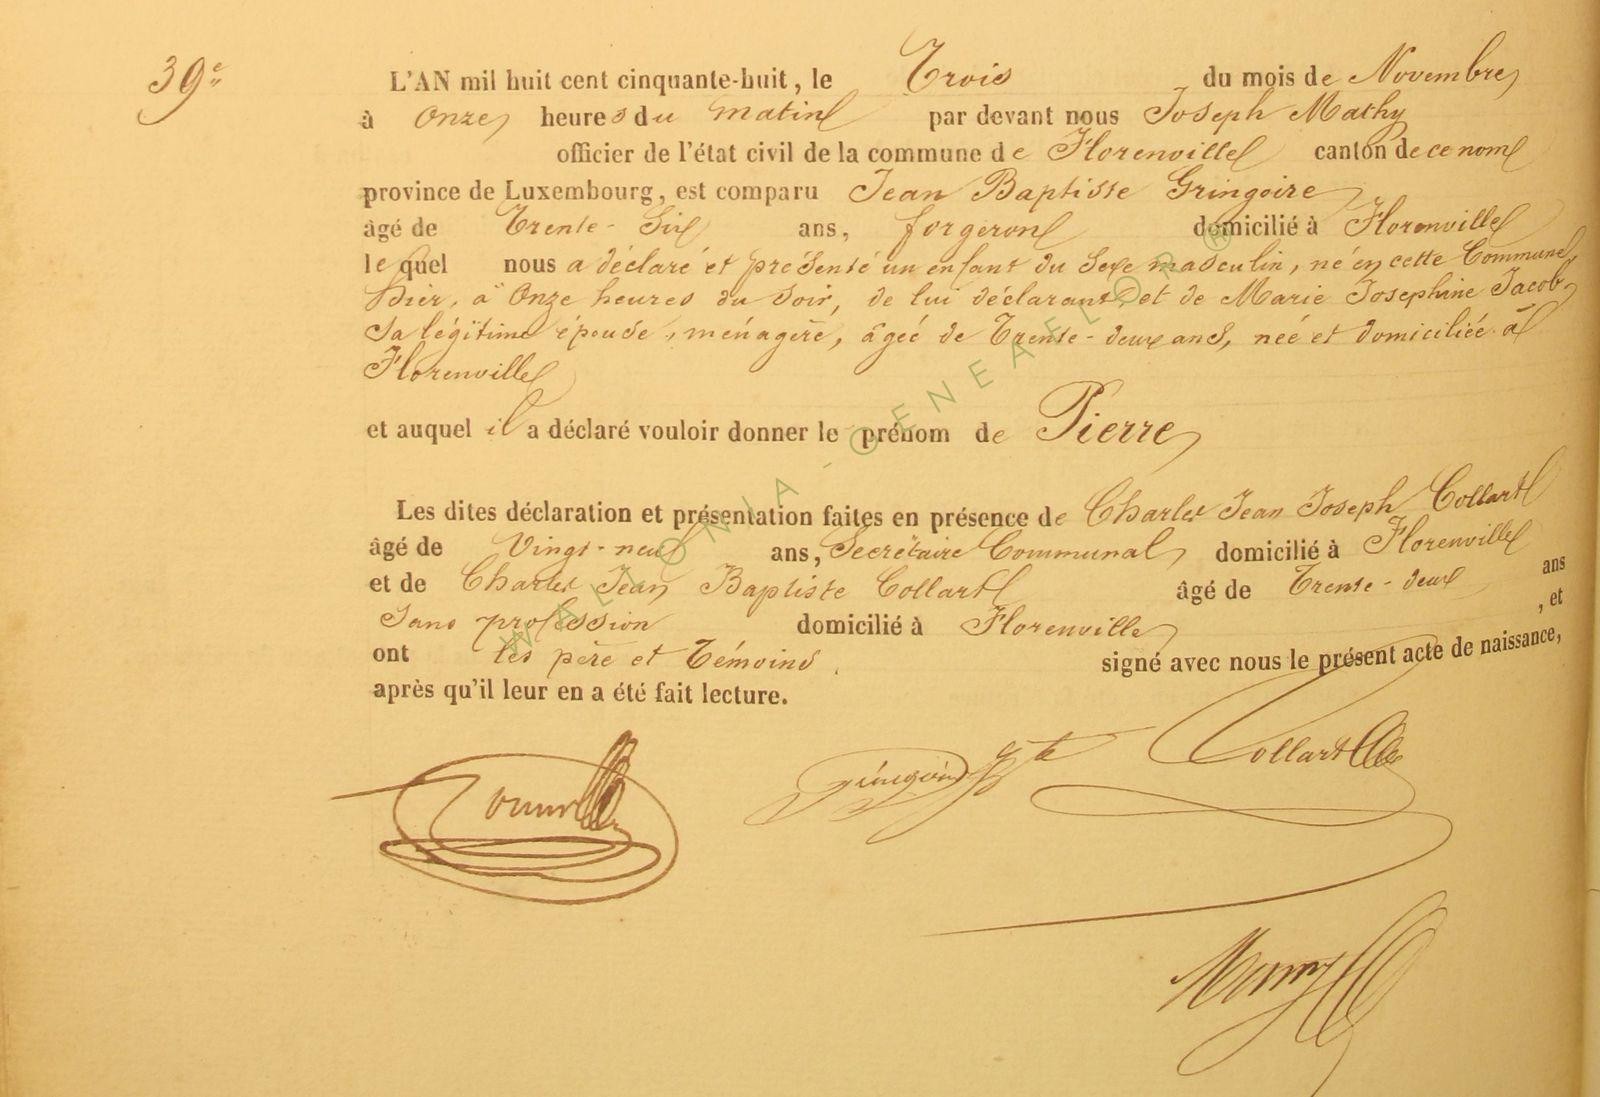 39e
L'AN mil huit cent cinquante-huit, le Trois du mois de Novembre
à Onze heures du matin par devant nous Joseph Mathy
officier de l'état civil de la commune de Florenville canton de ce nom
province de Luxembourg, est comparu Jean Baptiste Gringoire
âgé de Trente-Six ans, forgeron domicilié à Florenville
le quel nous a déclaré et présenté un enfant du sexe masculin, né en cette Commune,
hier, à Onze heures du soir, de lui déclarant et de Marie Josephine Jacob,
sa légitime épouse, ménagère, âgée de Trente-deux ans, née et domiciliée à
Florenville
et auquel il a déclaré vouloir donner le prénom de Pierre
Les dites déclaration et présentation faites en présence de Charles Jean Joseph Collart
âgé de Vingt-neuf ans, Secrétaire Communal domicilié à Florenville
et de Charles Jean Baptiste Collart âgé de Trente-deux ans
Sans profession domicilié à Florenville, et
ont les père et Témoins signé avec nous le présent acte de naissance,
après qu'il leur en a été fait lecture.
Collart
WALLONIA-GENEAFLOR ®